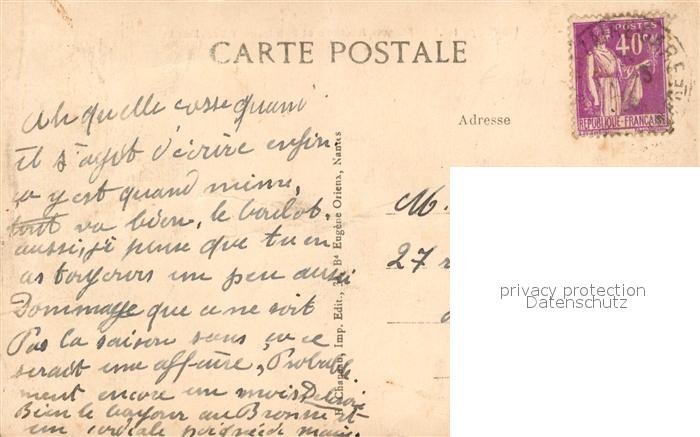 CARTE POSTALE
POSTES
40c
RÉPUBLIQUE FRANÇAISE
Adresse
Ah quelle cosse quand
il s'agit d'écrire enfin
ça y est quand même,
tout va bien, le boulot.
aussi, je pense que tu en
as toujours un peu aussi
Dommage que ce ne soit
Pas la saison sans ça ce
serait une affaire, Probable
ment encore un mois
Bien le bonjour au
un cordiale poignée de main.
Imp. Edit., Bd Eugène Orieux, Nantes
M.
27 r
privacy protection
Datenschutz